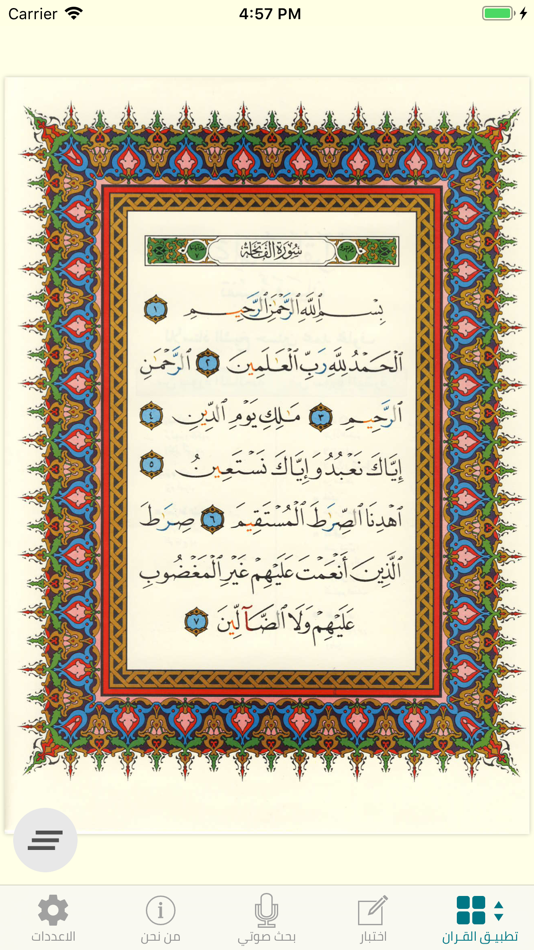 Carrier 4:57 PM
سُورَةُ الفَاتِحَة
بِسْمِ ٱللَّهِ ٱلرَّحْمَٰنِ ٱلرَّحِيمِ ١
ٱلْحَمْدُ لِلَّهِ رَبِّ ٱلْعَٰلَمِينَ ٢ ٱلرَّحْمَٰنِ
ٱلرَّحِيمِ ٣ مَٰلِكِ يَوْمِ ٱلدِّينِ ٤
إِيَّاكَ نَعْبُدُ وَإِيَّاكَ نَسْتَعِينُ ٥
ٱهْدِنَا ٱلصِّرَٰطَ ٱلْمُسْتَقِيمَ ٦ صِرَٰطَ
ٱلَّذِينَ أَنْعَمْتَ عَلَيْهِمْ غَيْرِ ٱلْمَغْضُوبِ
عَلَيْهِمْ وَلَا ٱلضَّآلِّينَ ٧
تطبيق القران اختبار بحث صوتي من نحن الاعددات